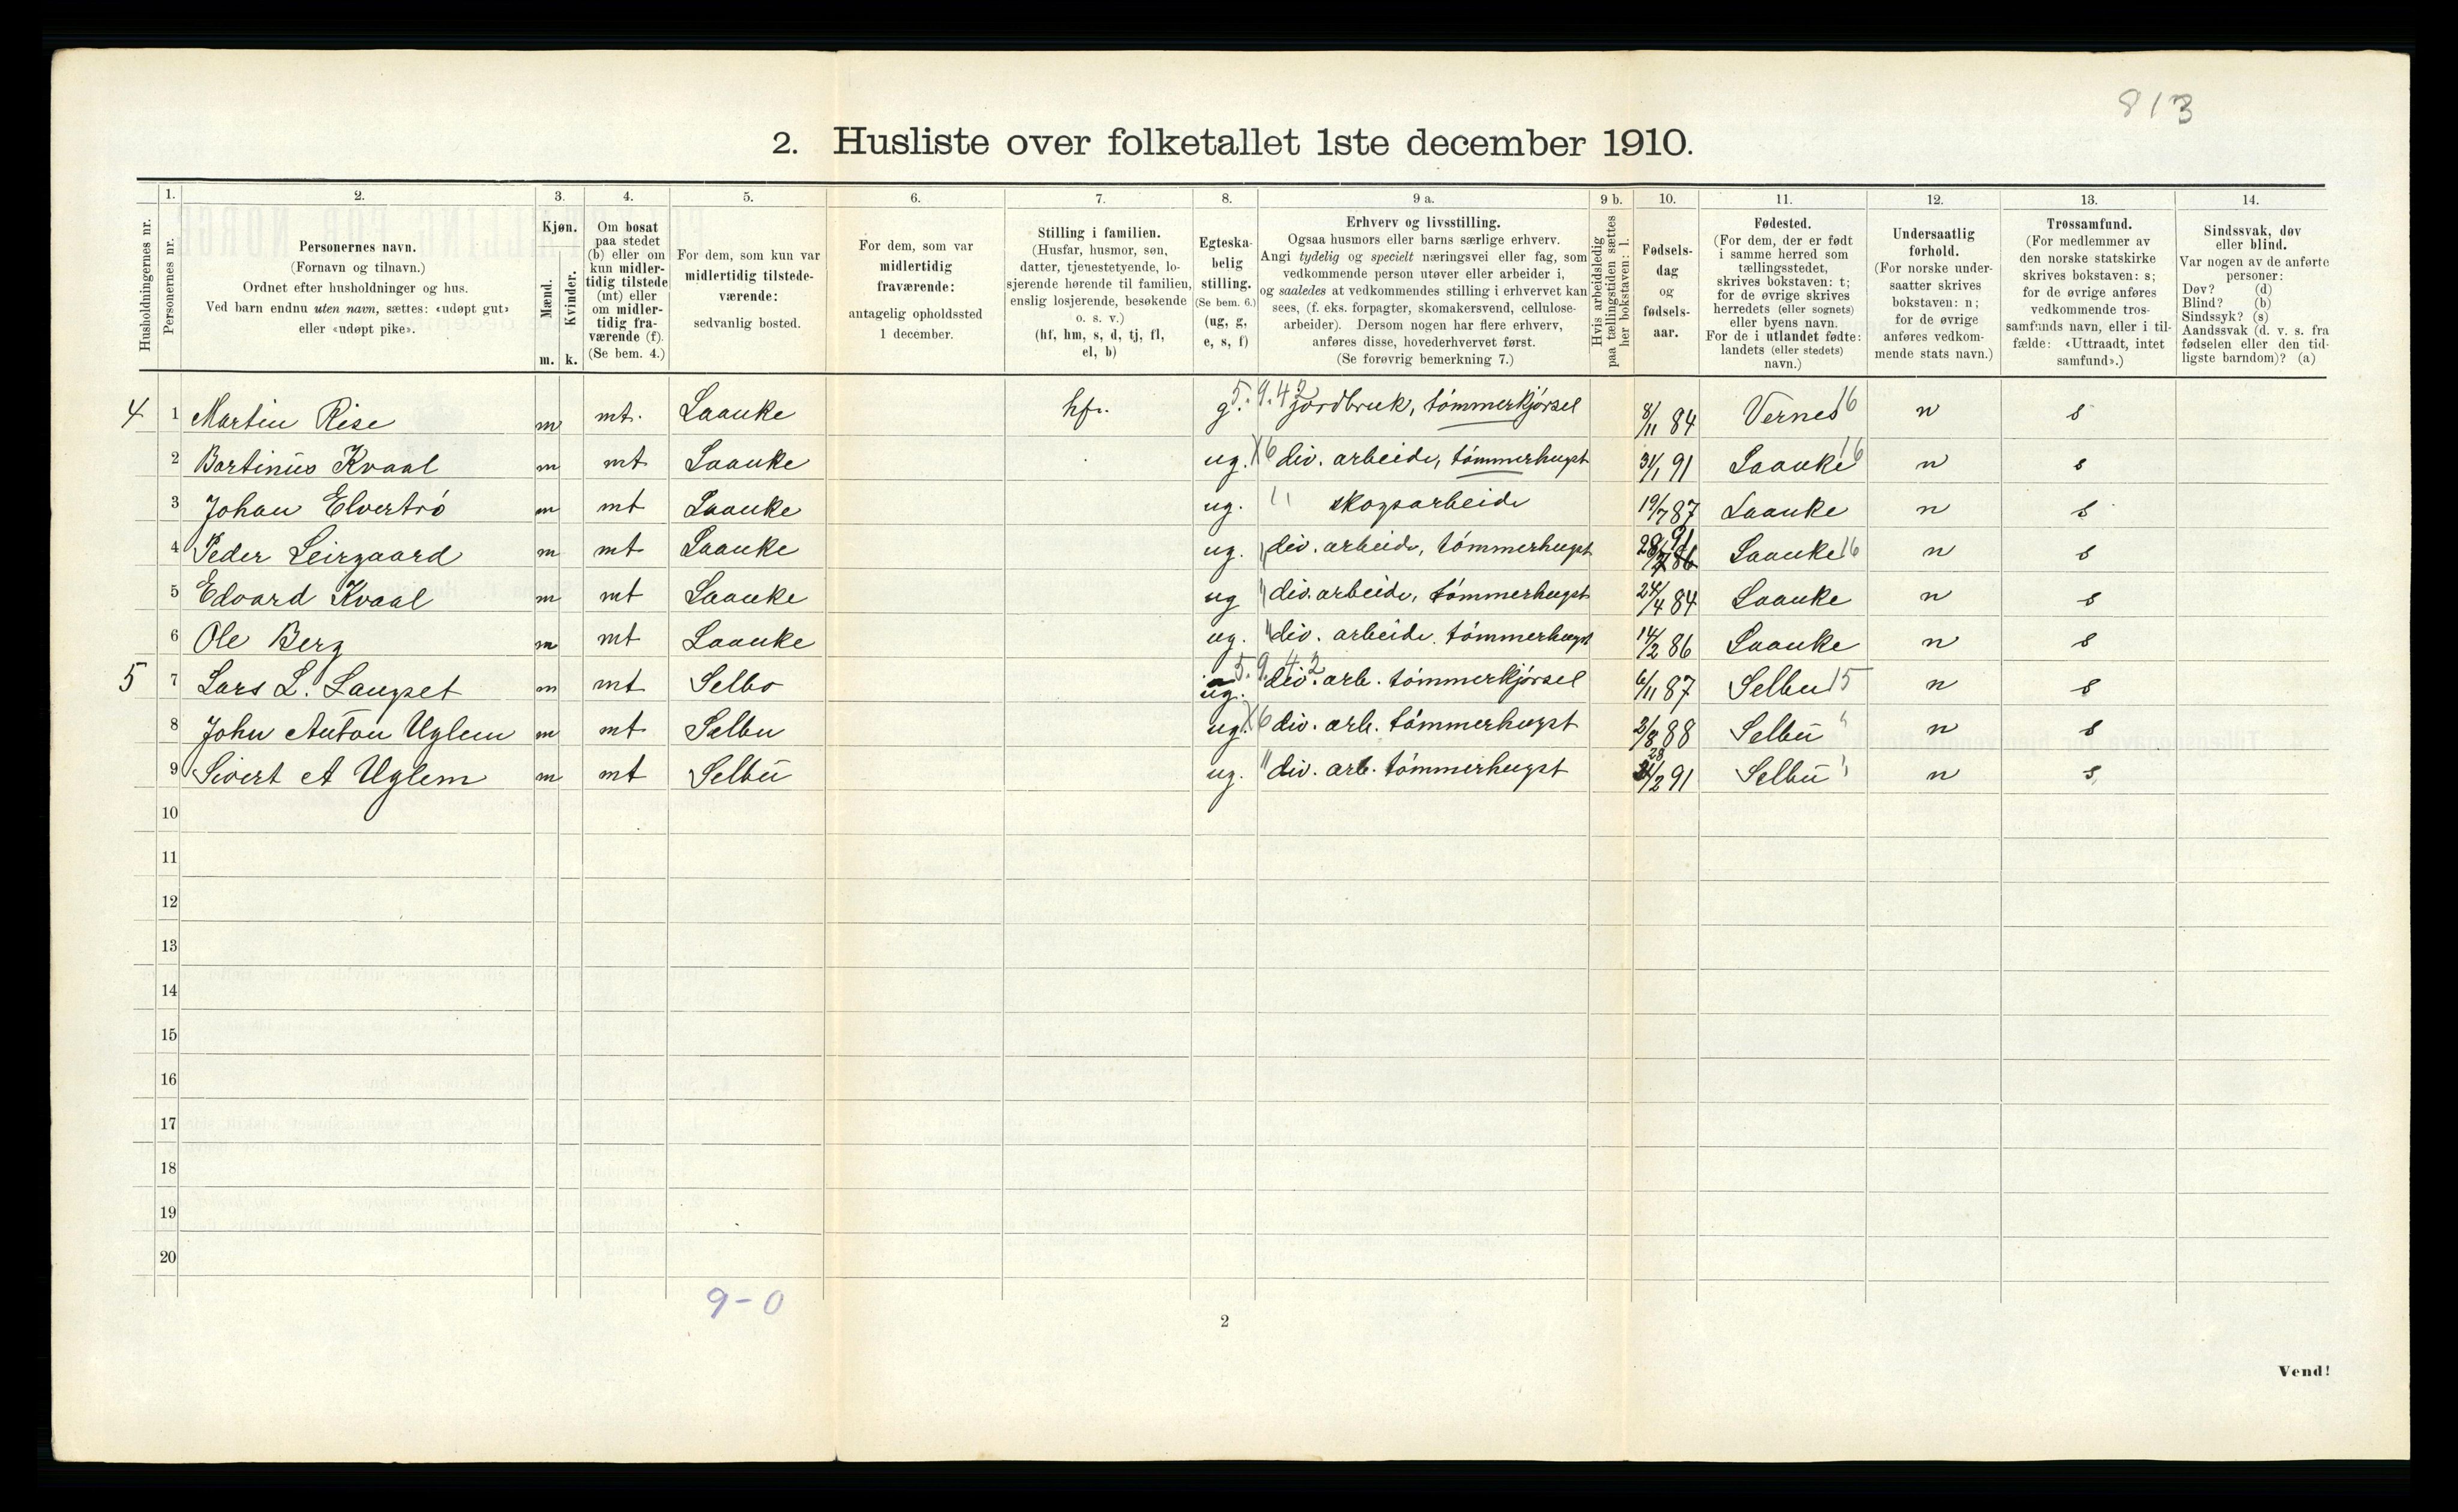 813
2. Husliste over folketallet 1ste december 1910.
Husholdningernes nr.
1. Personernes nr.
2. Personernes navn. (Fornavn og tilnavn.) Ordnet efter husholdninger og hus. Ved barn endnu uten navn, sættes: «udøpt gut» eller «udøpt pike».
3. Kjøn. Mænd. m. Kvinder. k.
4. Om bosat paa stedet (b) eller om kun midlertidig tilstede (mt) eller om midlertidig fraværende (f). (Se bem. 4.)
5. For dem, som kun var midlertidig tilstedeværende: sedvanlig bosted.
6. For dem, som var midlertidig fraværende: antagelig opholdssted 1 december.
7. Stilling i familien. (Husfar, husmor, søn, datter, tjenestetyende, losjerende hørende til familien, enslig losjerende, besøkende o. s. v.) (hf, hm, s, d, tj, fl, el, b)
8. Egteskabelig stilling. (Se bem. 6.) (ug, g, e, s, f)
9 a. Erhverv og livsstilling. Ogsaa husmors eller barns særlige erhverv. Angi tydelig og specielt næringsvei eller fag, som vedkommende person utøver eller arbeider i, og saaledes at vedkommendes stilling i erhvervet kan sees, (f. eks. forpagter, skomakersvend, cellulosearbeider). Dersom nogen har flere erhverv, anføres disse, hovederhvervet først. (Se forøvrig bemerkning 7.)
9 b. Hvis arbeidsledig paa tællingstiden sættes her bokstaven: l.
10. Fødselsdag og fødselsaar.
11. Fødested. (For dem, der er født i samme herred som tællingsstedet, skrives bokstaven: t; for de øvrige skrives herredets (eller sognets) eller byens navn. For de i utlandet fødte: landets (eller stedets) navn.)
12. Undersaatlig forhold. (For norske undersaatter skrives bokstaven: n; for de øvrige anføres vedkommende stats navn.)
13. Trossamfund. (For medlemmer av den norske statskirke skrives bokstaven: s; for de øvrige anføres vedkommende trossamfunds navn, eller i tilfælde: «Uttraadt, intet samfund».)
14. Sindssvak, døv eller blind. Var nogen av de anførte personer: Døv? (d) Blind? (b) Sindssyk? (s) Aandssvak (d. v. s. fra fødselen eller den tidligste barndom)? (a)
4 1 Martin Rise m mt. Laanke hf. g. 5.9.42 jordbruk, tømmerkjørsel 8/11 84 Vernes 16 n s
2 Bartinus Kvaal m mt Laanke ug. X6 div. arbeide, tømmerhugst 31/1 91 Laanke 16 n s
3 Johan Elvertrø m mt Laanke ug. " skogsarbeide 19/7 87 Laanke n s
4 Peder Leirgaard m mt Laanke ug. " div. arbeide, tømmerhugst Laanke 16 n s
5 Edvard Kvaal m mt Laanke ug " div. arbeide, tømmerhugst 24/4 84 Laanke n s
6 Ole Berg m mt Laanke ug. " div. arbeide. tømmerhugst 14/2 86 Laanke n s
5 7 Lars L. Langset m mt Selbo ug. 5.9.42 div. arb. tømmerkjørsel 6/11 87 Selbu 15 n s
8 John Anton Uglem m mt Selbu ug. X6 div. arb. tømmerhugst 2/8 88 Selbu " n s
9 Sivert A Uglem m mt Selbu ug. " div. arb. tømmerhugst 28/2 91 Selbu " n s
10
11
12
13
14
15
16
17
18
19
20
9-0
2
Vend!